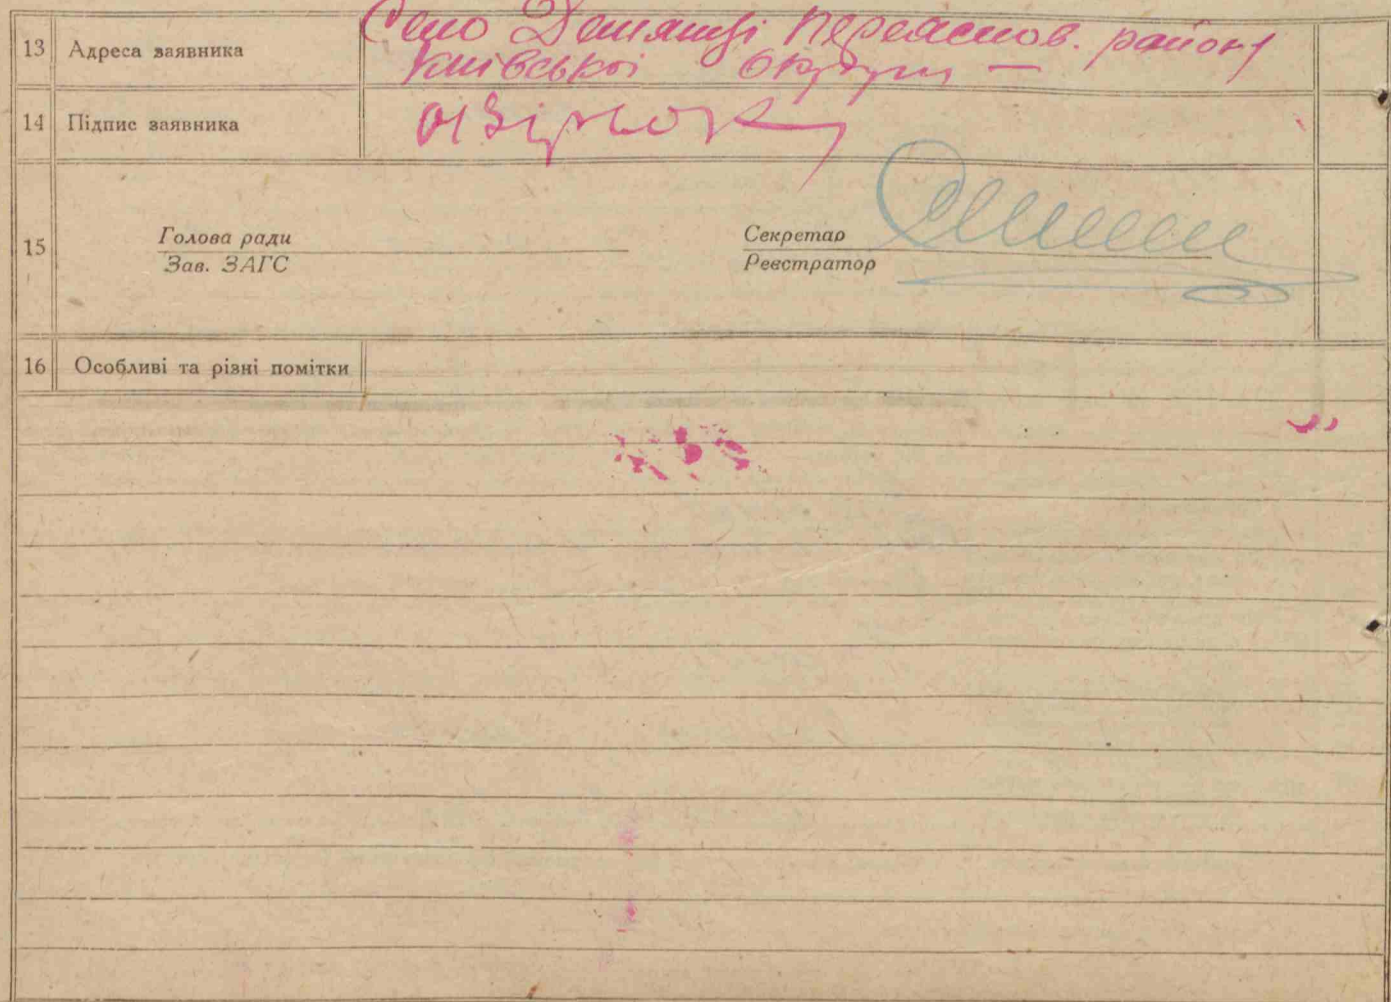 13 Адреса заявника Село Демянці Переяслов. району
Київської Округи —
14 Підпис заявника
15 Голова ради
Зав. ЗАГС
Секретар
Реєстратор
16 Особливі та різні помітки